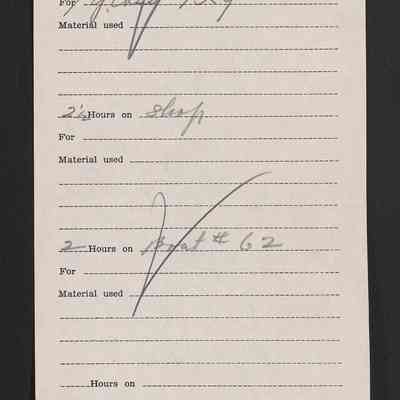 For
Material used
2½ Hours on Shop
For
Material used
2 Hours on Boat # 62
For
Material used
Hours on